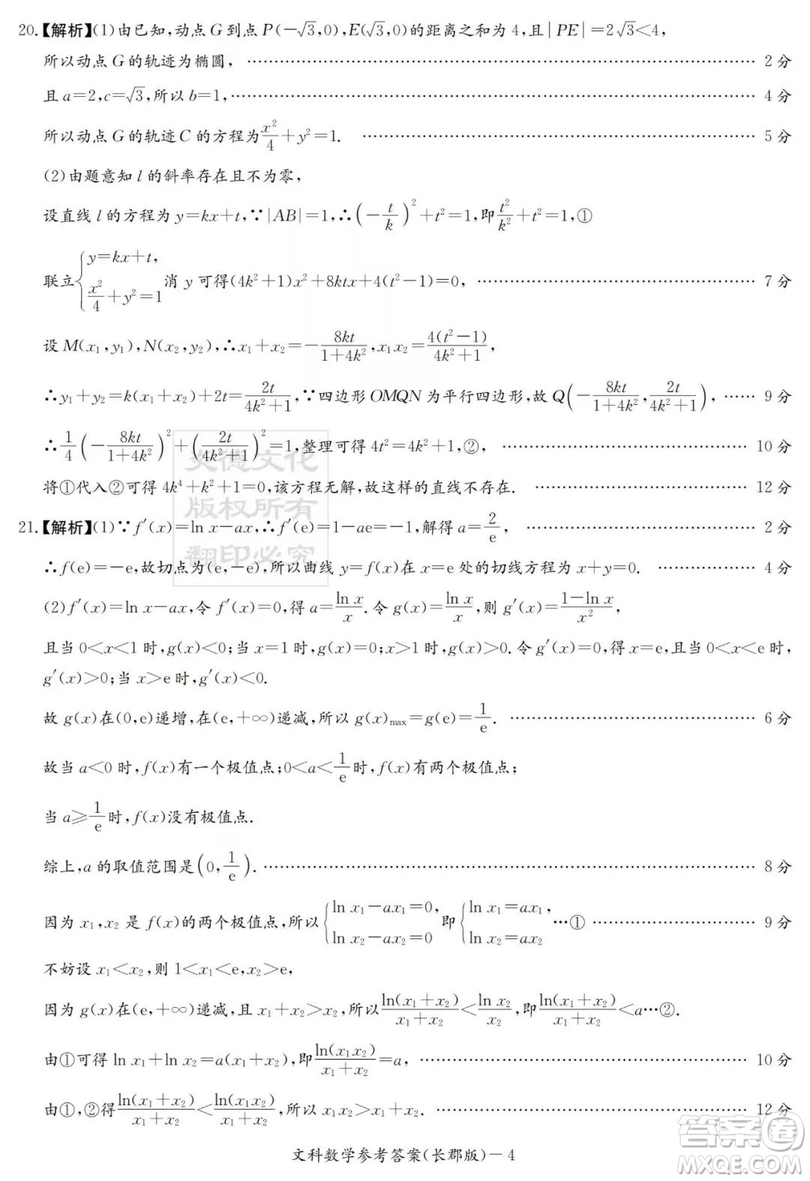 20.【解析】(1)由已知,动点G到点P(-√3,0),E(√3,0)的距离之和为4,且|PE|=2√3<4,
所以动点G的轨迹为椭圆,……2分
且a=2,c=√3,所以b=1,……4分
所以动点G的轨迹C的方程为x²/4+y²=1. ……5分
(2)由题意知l的斜率存在且不为零,
设直线l的方程为y=kx+t,∵|AB|=1,∴(-t/k)²+t²=1,即t²/k²+t²=1,①
联立{y=kx+t, x²/4+y²=1 消y可得(4k²+1)x²+8ktx+4(t²-1)=0,……7分
设M(x₁,y₁),N(x₂,y₂),∴x₁+x₂=-8kt/(1+4k²),x₁x₂=4(t²-1)/(4k²+1),
∴y₁+y₂=k(x₁+x₂)+2t=2t/(4k²+1),∵四边形OMQN为平行四边形,故Q(-8kt/(1+4k²),2t/(4k²+1)),……9分
∴1/4(-8kt/(1+4k²))²+(2t/(4k²+1))²=1,整理可得4t²=4k²+1,②,……10分
将①代入②可得4k⁴+k²+1=0,该方程无解,故这样的直线不存在. ……12分
21.【解析】(1)∵f′(x)=ln x-ax,∴f′(e)=1-ae=-1,解得a=2/e,……2分
∴f(e)=-e,故切点为(e,-e),所以曲线y=f(x)在x=e处的切线方程为x+y=0. ……4分
(2)f′(x)=ln x-ax,令f′(x)=0,得a=ln x/x.令g(x)=ln x/x,则g′(x)=(1-ln x)/x²,
且当0<x<1时,g(x)<0;当x=1时,g(x)=0;x>1时,g(x)>0.令g′(x)=0,得x=e,且当0<x<e时,
g′(x)>0;当x>e时,g′(x)<0.
故g(x)在(0,e)递增,在(e,+∞)递减,所以g(x)max=g(e)=1/e. ……6分
故当a<0时,f(x)有一个极值点;0<a<1/e时,f(x)有两个极值点;
当a≥1/e时,f(x)没有极值点.
综上,a的取值范围是(0,1/e). ……8分
因为x₁,x₂是f(x)的两个极值点,所以{ln x₁-ax₁=0, ln x₂-ax₂=0 即{ln x₁=ax₁, ln x₂=ax₂ …① ……9分
不妨设x₁<x₂,则1<x₁<e,x₂>e,
因为g(x)在(e,+∞)递减,且x₁+x₂>x₂,所以ln(x₁+x₂)/(x₁+x₂)<ln x₂/x₂,即ln(x₁+x₂)/(x₁+x₂)<a…②.
由①可得ln x₁+ln x₂=a(x₁+x₂),即ln(x₁x₂)/(x₁+x₂)=a,……10分
由①,②得ln(x₁+x₂)/(x₁+x₂)<ln(x₁x₂)/(x₁+x₂),所以x₁+x₂<x₁x₂. ……12分
文科数学参考答案(长郡版)-4
版权所有
翻印必究
答案圈
MXQE.COM